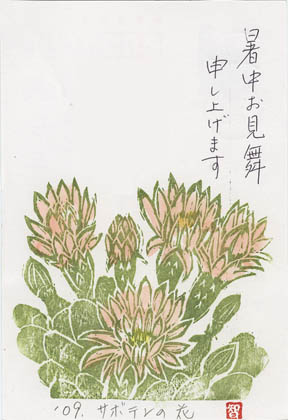 暑中お見舞
申し上げます
'09. サボテンの花
智